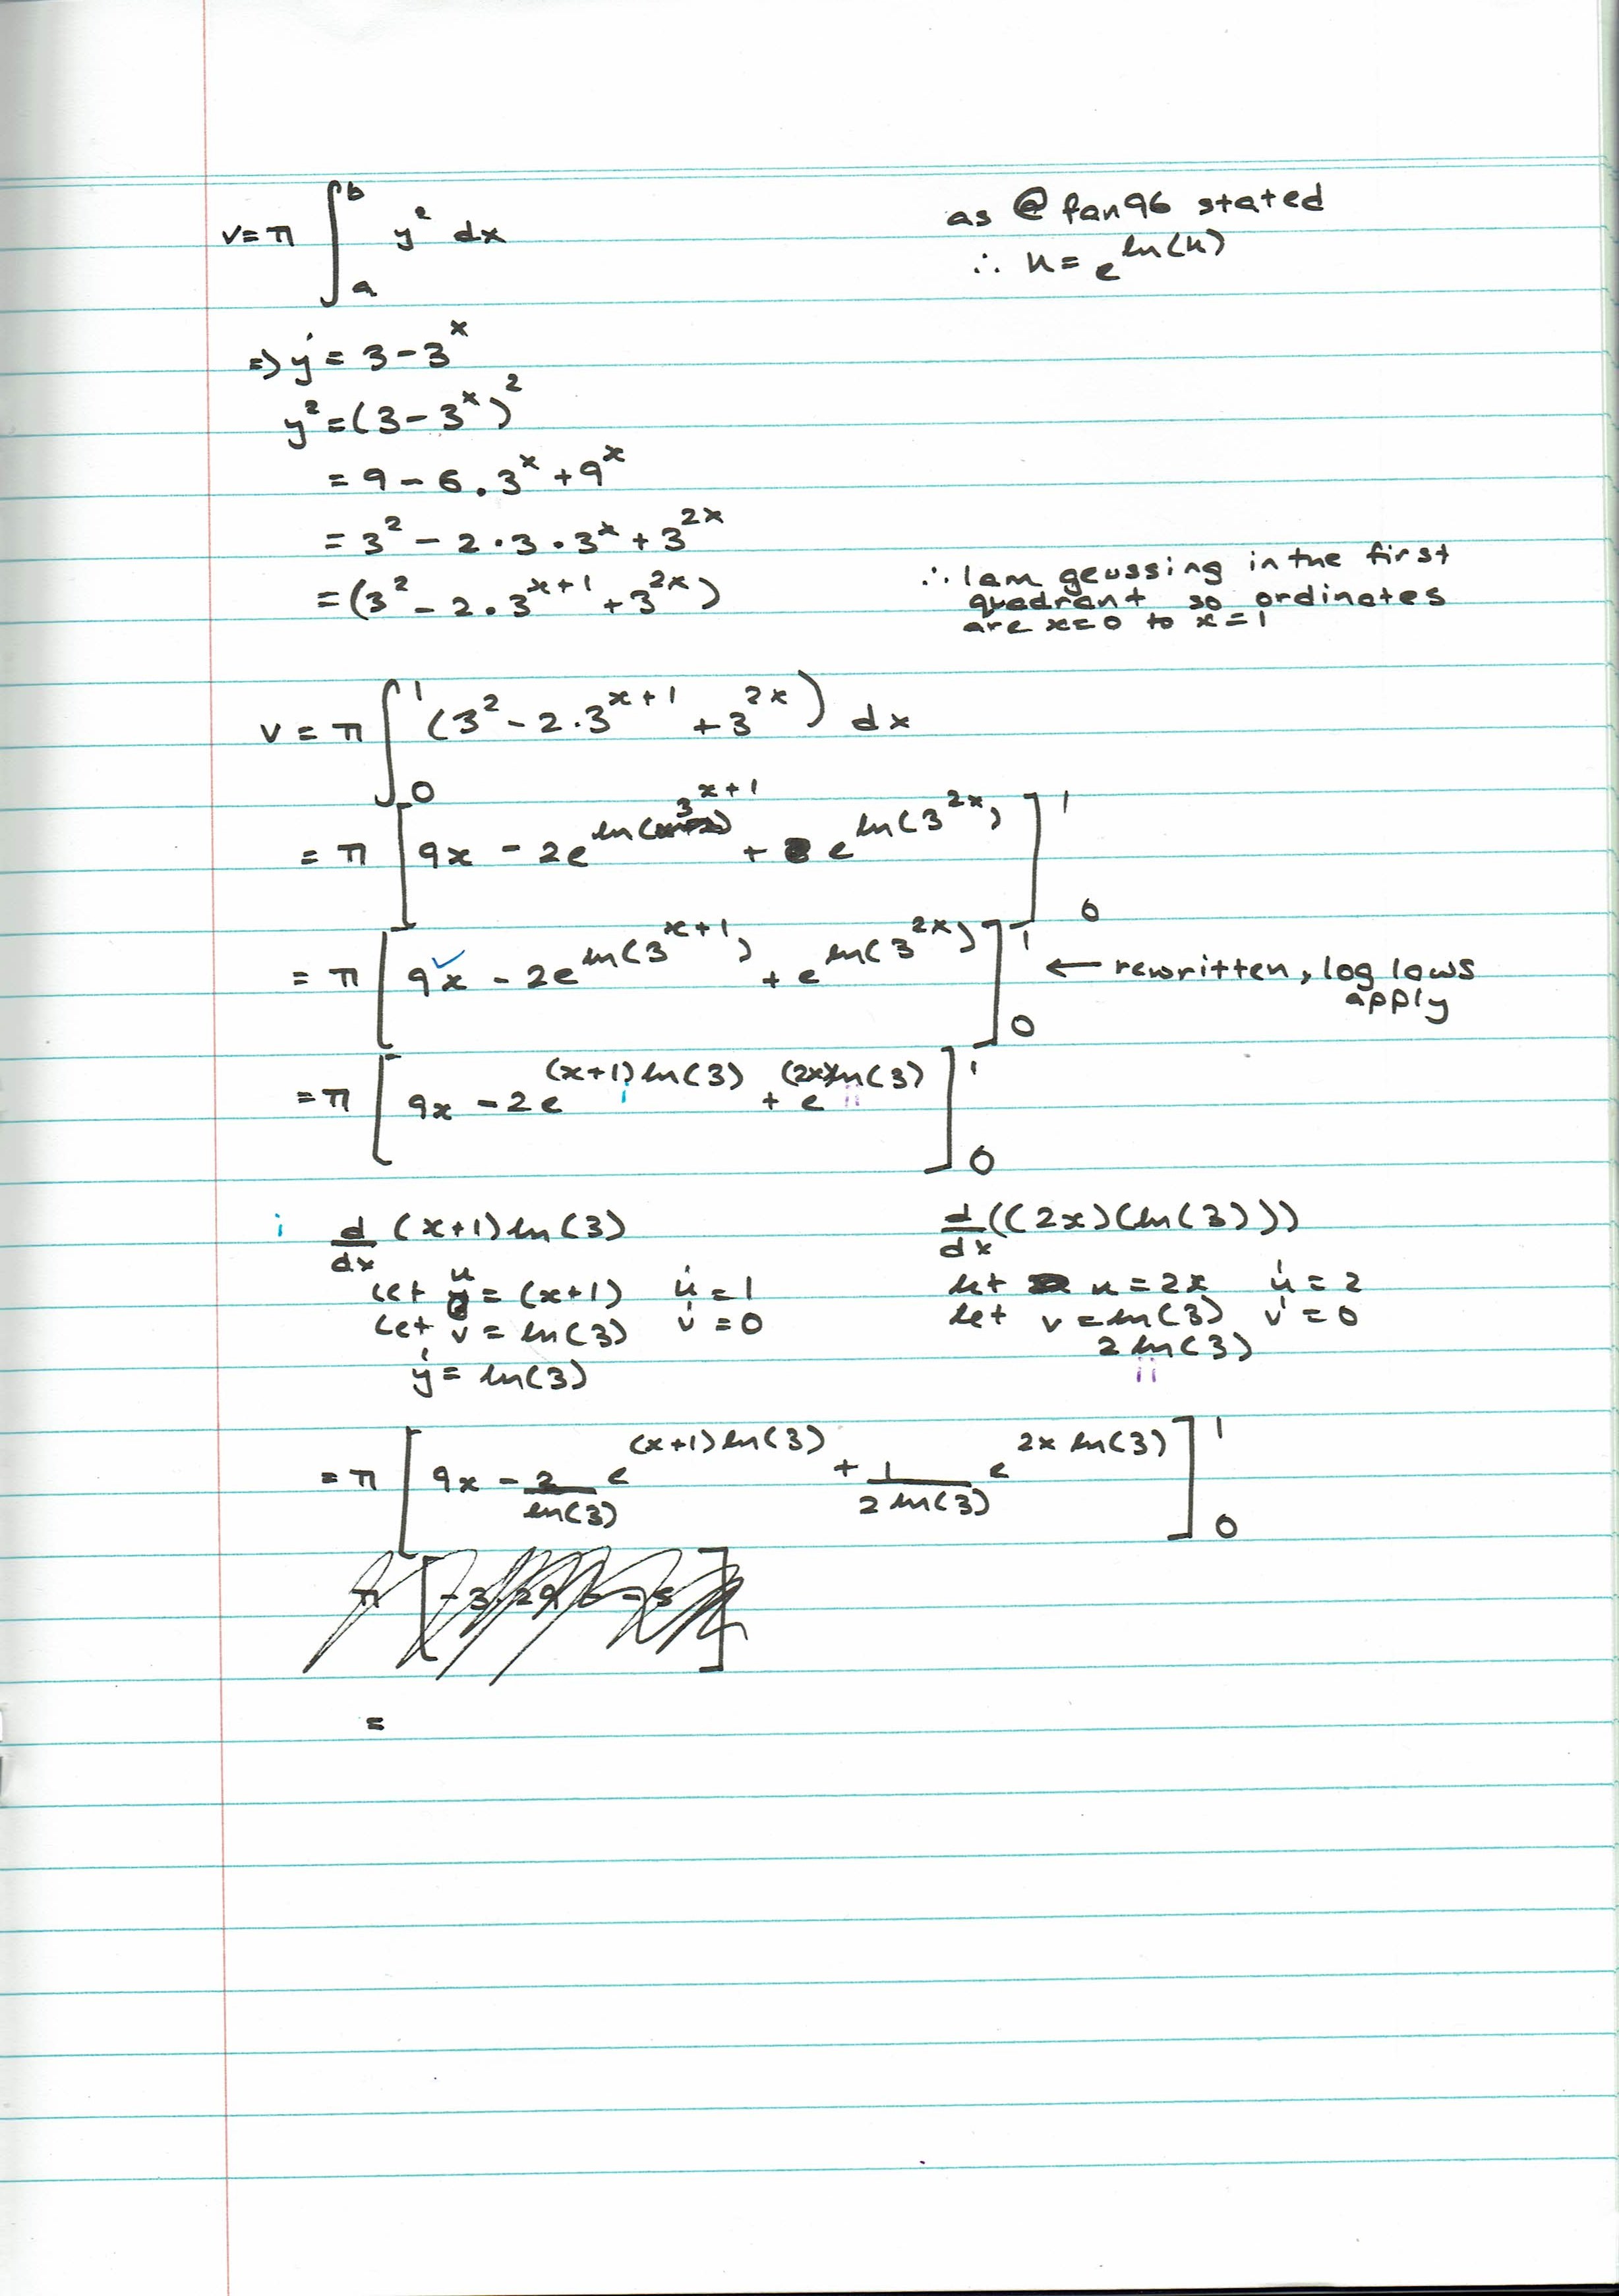 v = π ∫_a^b y² dx
as @fan96 stated
∴ u = e^ln(u)
⇒ ý = 3 - 3^x
y² = (3 - 3^x)²
= 9 - 6 . 3^x + 9^x
= 3² - 2 · 3 · 3^x + 3^2x
= (3² - 2 . 3^x+1 + 3^2x)
∴ I am geussing in the first
quadrant so ordinates
are x=0 to x=1
v = π ∫_0^1 (3² - 2 . 3^x+1 + 3^2x) dx
= π [9x - 2e^ln(3^x+1) + e^ln(3^2x)]_0^1
= π [9x - 2e^ln(3^x+1) + e^ln(3^2x)]_0^1 ← rewritten, log laws
apply
= π [9x - 2e^(x+1)ln(3) + e^(2x)ln(3)]_0^1
i
ii
i d/dx (x+1) ln(3)
let u = (x+1) u̇ = 1
let v = ln(3) v̇ = 0
ẏ = ln(3)
d/dx ((2x)(ln(3)))
let u = 2x u̇ = 2
let v = ln(3) v' = 0
2 ln(3)
ii
= π [9x - 2/ln(3) e^(x+1)ln(3) + 1/2 ln(3) e^2x ln(3)]_0^1
=